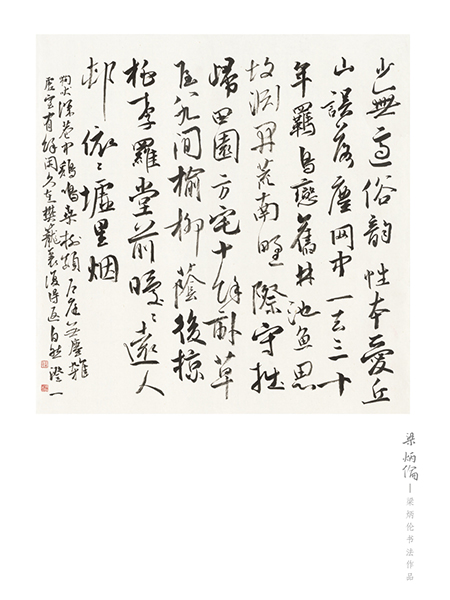 少無適俗韵性本愛丘
山誤落塵网中一去三十
年羈鳥戀舊林池魚思
故淵開荒南野際守拙
歸田園方宅十餘畝草
屋八九間榆柳蔭後
桃李羅堂前曖々遠人
村依々墟里烟
狗吠深巷中鷄鳴桑樹顛户庭無塵雜
虚室有餘閑久在樊籠裏復得返自然 澄一
梁炳倫
梁炳伦书法作品